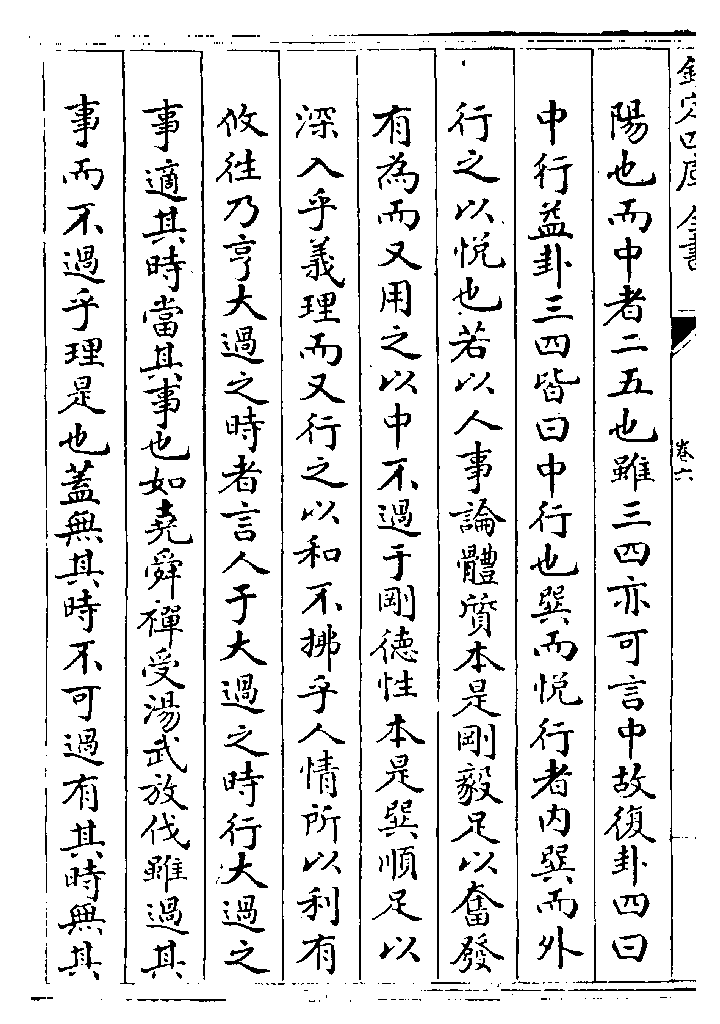 欽定四庫全書
卷六
陽也而中者二五也雖三四亦可言中故復卦四曰
中行益卦三四皆曰中行也巽而悅行者内巽而外
行之以悅也若以人事論體質本是剛毅足以奮發
有為而又用之以中不過于剛德性本是巽順足以
深入乎義理而又行之以和不拂乎人情所以利有
攸往乃亨大過之時者言人于大過之時行大過之
事適其時當其事也如堯舜禪受湯武放伐雖過其
事而不過乎理是也蓋無其時不可過有其時無其